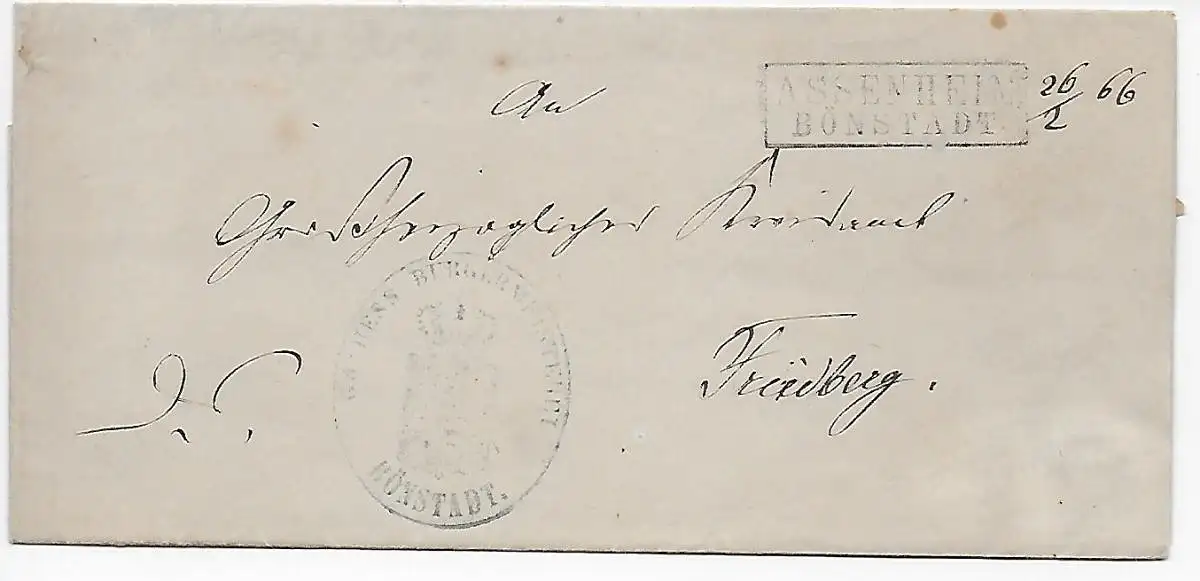 ASSENHEIM
BÖNSTADT.
26/2 66
An
Großherzogliches Kreisamt
Friedberg.
D. S.
GR. HESS BÜRGERMEISTEREI
BÖNSTADT.